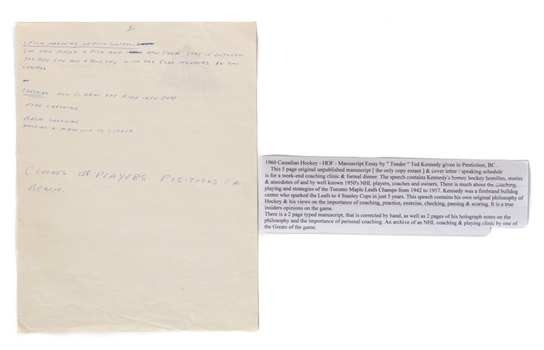 5
STICK HANDLING
THE RED LINE AND
CHECKING HOW TO BRING THE PLAY INTO
FORE CHECKING
BACK CHECKING
COACHES & PLAYERS POSITIONS ON
BENCH.
1960 Canadian Hockey - HOF - Manuscript Essay by " Teeder " Ted Kennedy given in Penticton, BC .
This 5 page original unpublished manuscript [ the only copy extant ] & cover letter / speaking schedule
is for a week-end coaching clinic & formal dinner. The speech contains Kennedy's homey hockey homilies, stories
& anecdotes of and by well known 1950's NHL players, coaches and owners. There is much about the coaching,
playing and strategies of the Toronto Maple Leafs Champs from 1942 to 1957. Kennedy was a firebrand bulldog
centre who sparked the Leafs to 4 Stanley Cups in just 5 years. This speech contains his own original philosophy of
Hockey & his views on the importance of coaching, practice, exercise, checking, passing & scoring. It is a true
insiders opinions on the game.
There is a 2 page typed manuscript, that is corrected by hand, as well as 2 pages of his holograph notes on the
philosophy and the importance of personal coaching. An archive of an NHL coaching & playing clinic by one of
the Greats of the game.